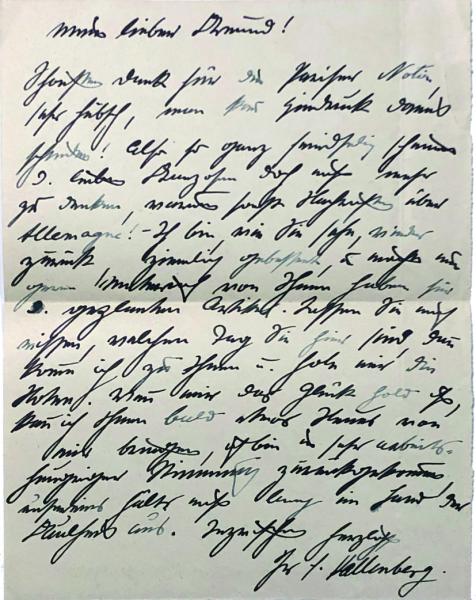 mein lieber Freund!
Schönsten Dank für die Pariser Notiz,
sehr hübsch, man kann Eindruck damit
schinden! Also so ganz feindselig scheinen
d. lieben Franzosen doch nicht mehr
zu denken, warum sonst Nachrichten über
Allemagne! - Ich bin, wie Sie sehn, wieder
zurück ziemlich gebessert, u. möchte nun
gerne von Ihnen haben für
d. geplanten Artikel. Lassen Sie mich
wissen, welchen Tag Sie hier sind, dann
komm ich zu Ihnen u. hole mir die
Noten. Wenn mir das Glück hold ist,
kann ich Ihnen bald etwas Neues von
mir bringen, ich bin in sehr arbeits-
hungriger Stimmung zurückgekommen,
unsereins hält's nicht lang im Land der
Faulheit aus. Inzwischen herzlichst
Ihr J. Kallenberg.